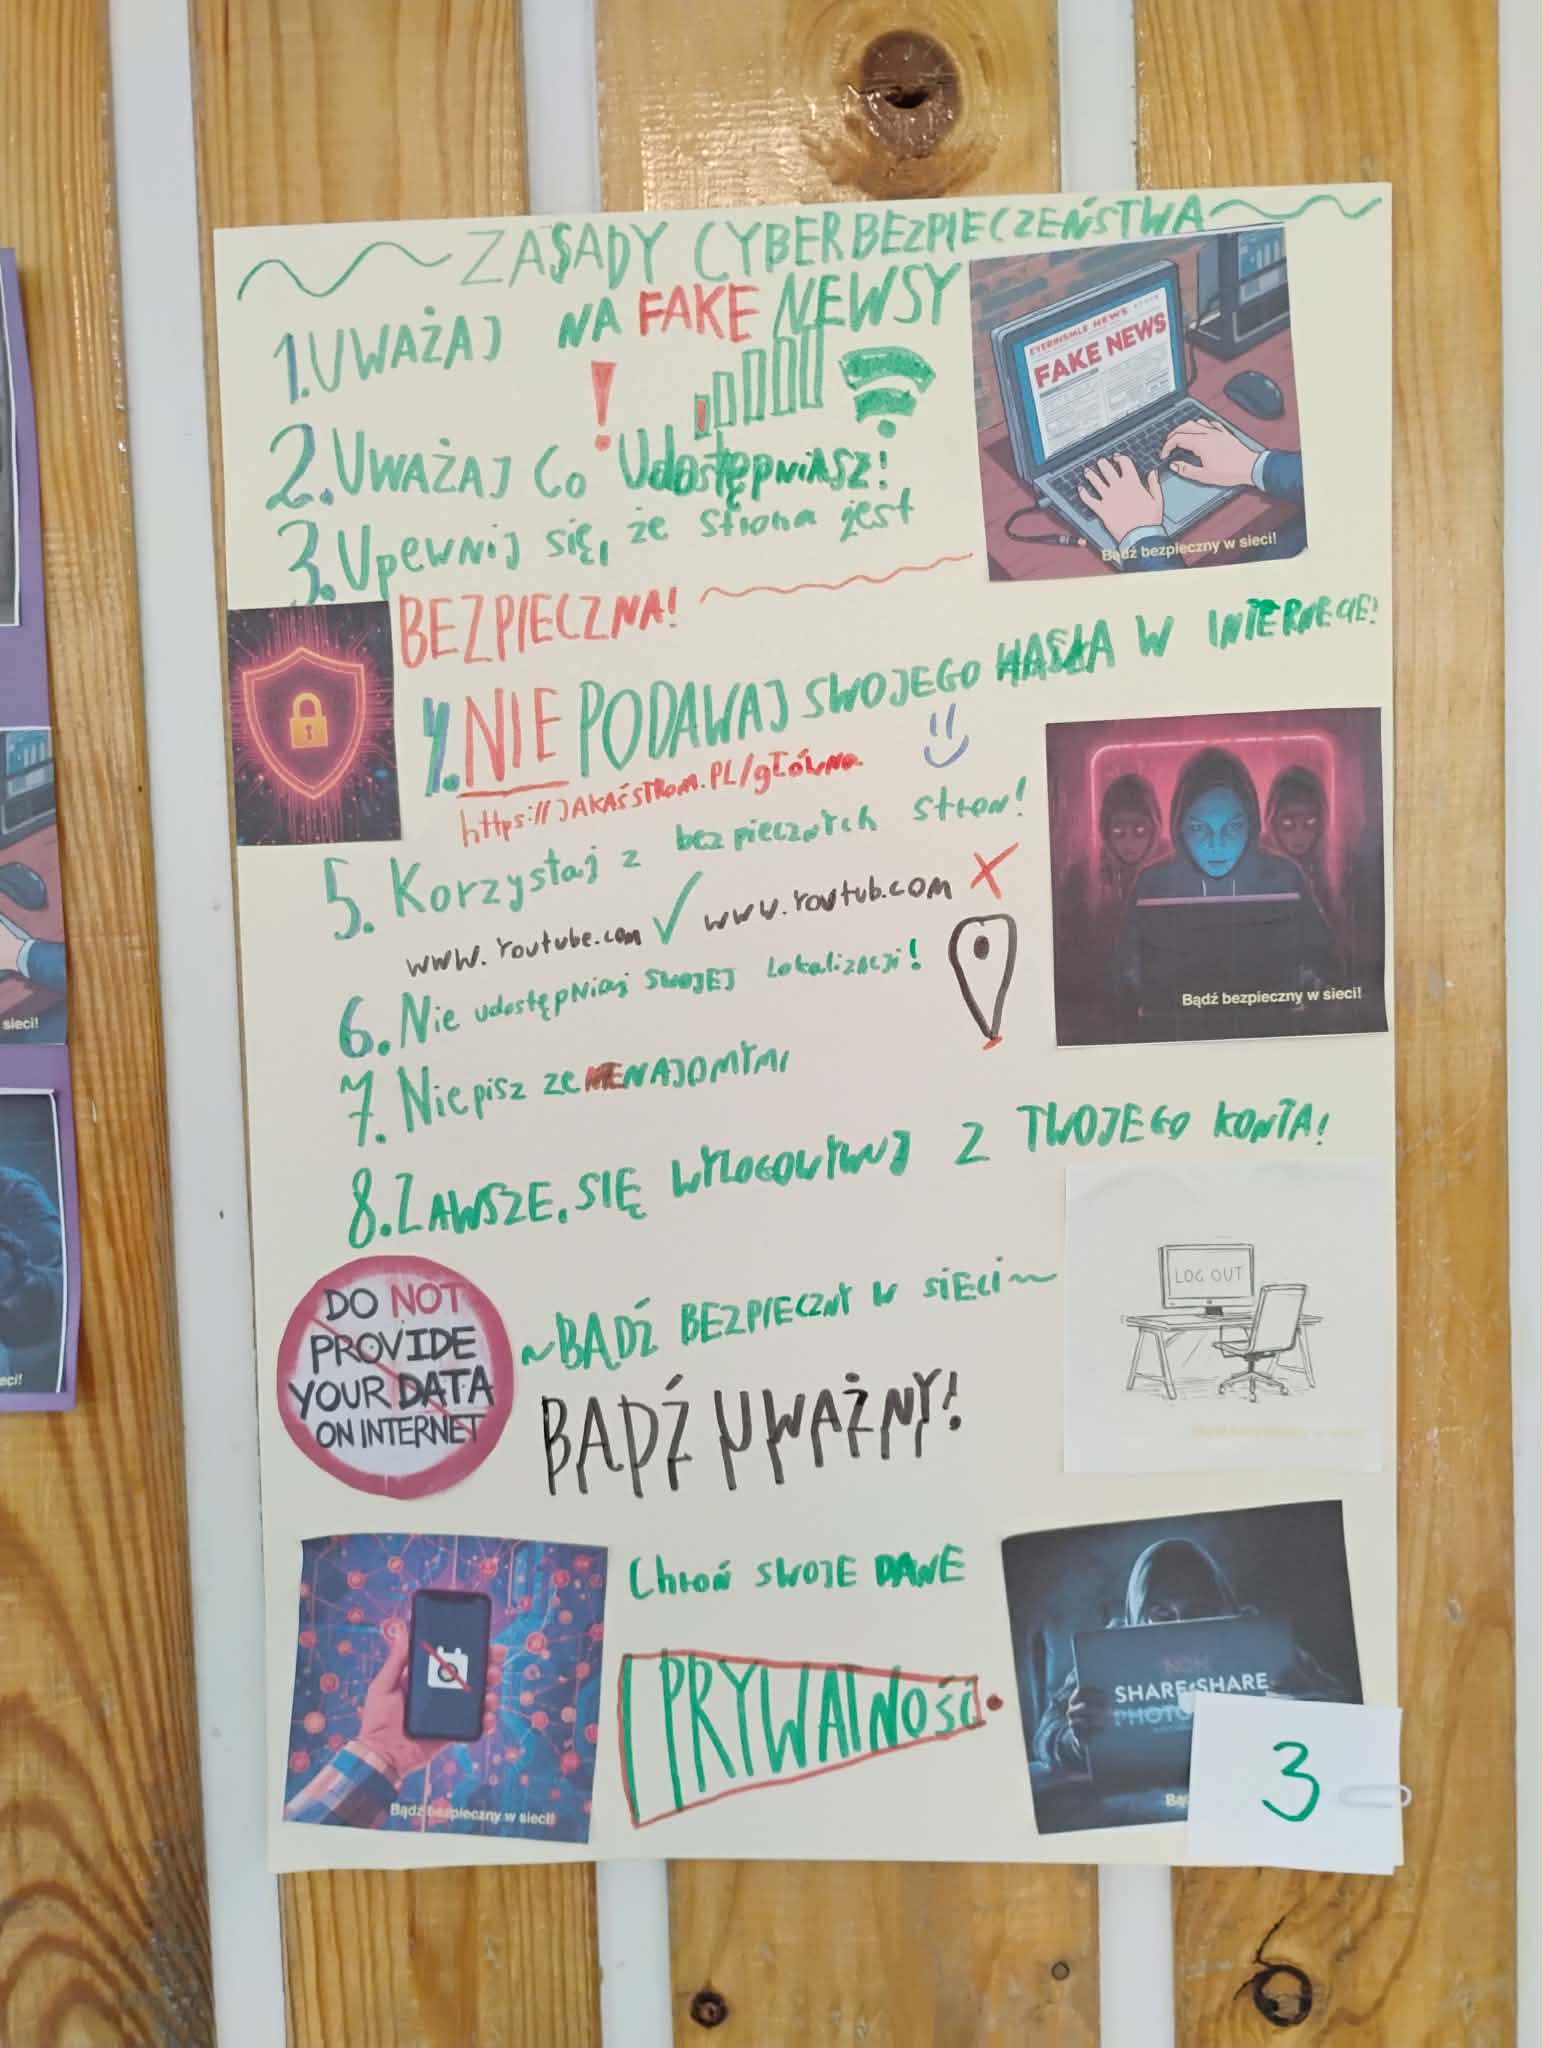 ZASADY CYBERBEZPIECZEŃSTWA
1. UWAŻAJ NA FAKE NEWSY
!
EYERINSMLE NEWS
FAKE NEWS
Bądź bezpieczny w sieci!
2. UWAŻAJ Co Udostępniasz!
3. Upewnij się, że strona jest
BEZPIECZNA!
4. NIE PODAWAJ SWOJEGO HASŁA W INTERNECIE!
https://JAKAŚSTRONA.PL/główna
5. Korzystaj z bezpiecznych stron!
www.Youtube.com ✓ www.Youtub.com X
Bądź bezpieczny w sieci!
6. Nie udostępniaj SWOJEJ Lokalizacji!
7. Nie pisz ze NIENAJOMYMI
8. ZAWSZE. SIĘ WYLOGOWYWUJ Z TWOJEGO KONTA!
LOG OUT
DO NOT
PROVIDE
YOUR DATA
ON INTERNET
~BĄDŹ BEZPIECZNY W SIECI~
BĄDŹ UWAŻNY!
Chroń SWOJE DANE
I PRYWATNOŚĆ
Bądź bezpieczny w sieci!
SHARE SHARE
3
sieci!